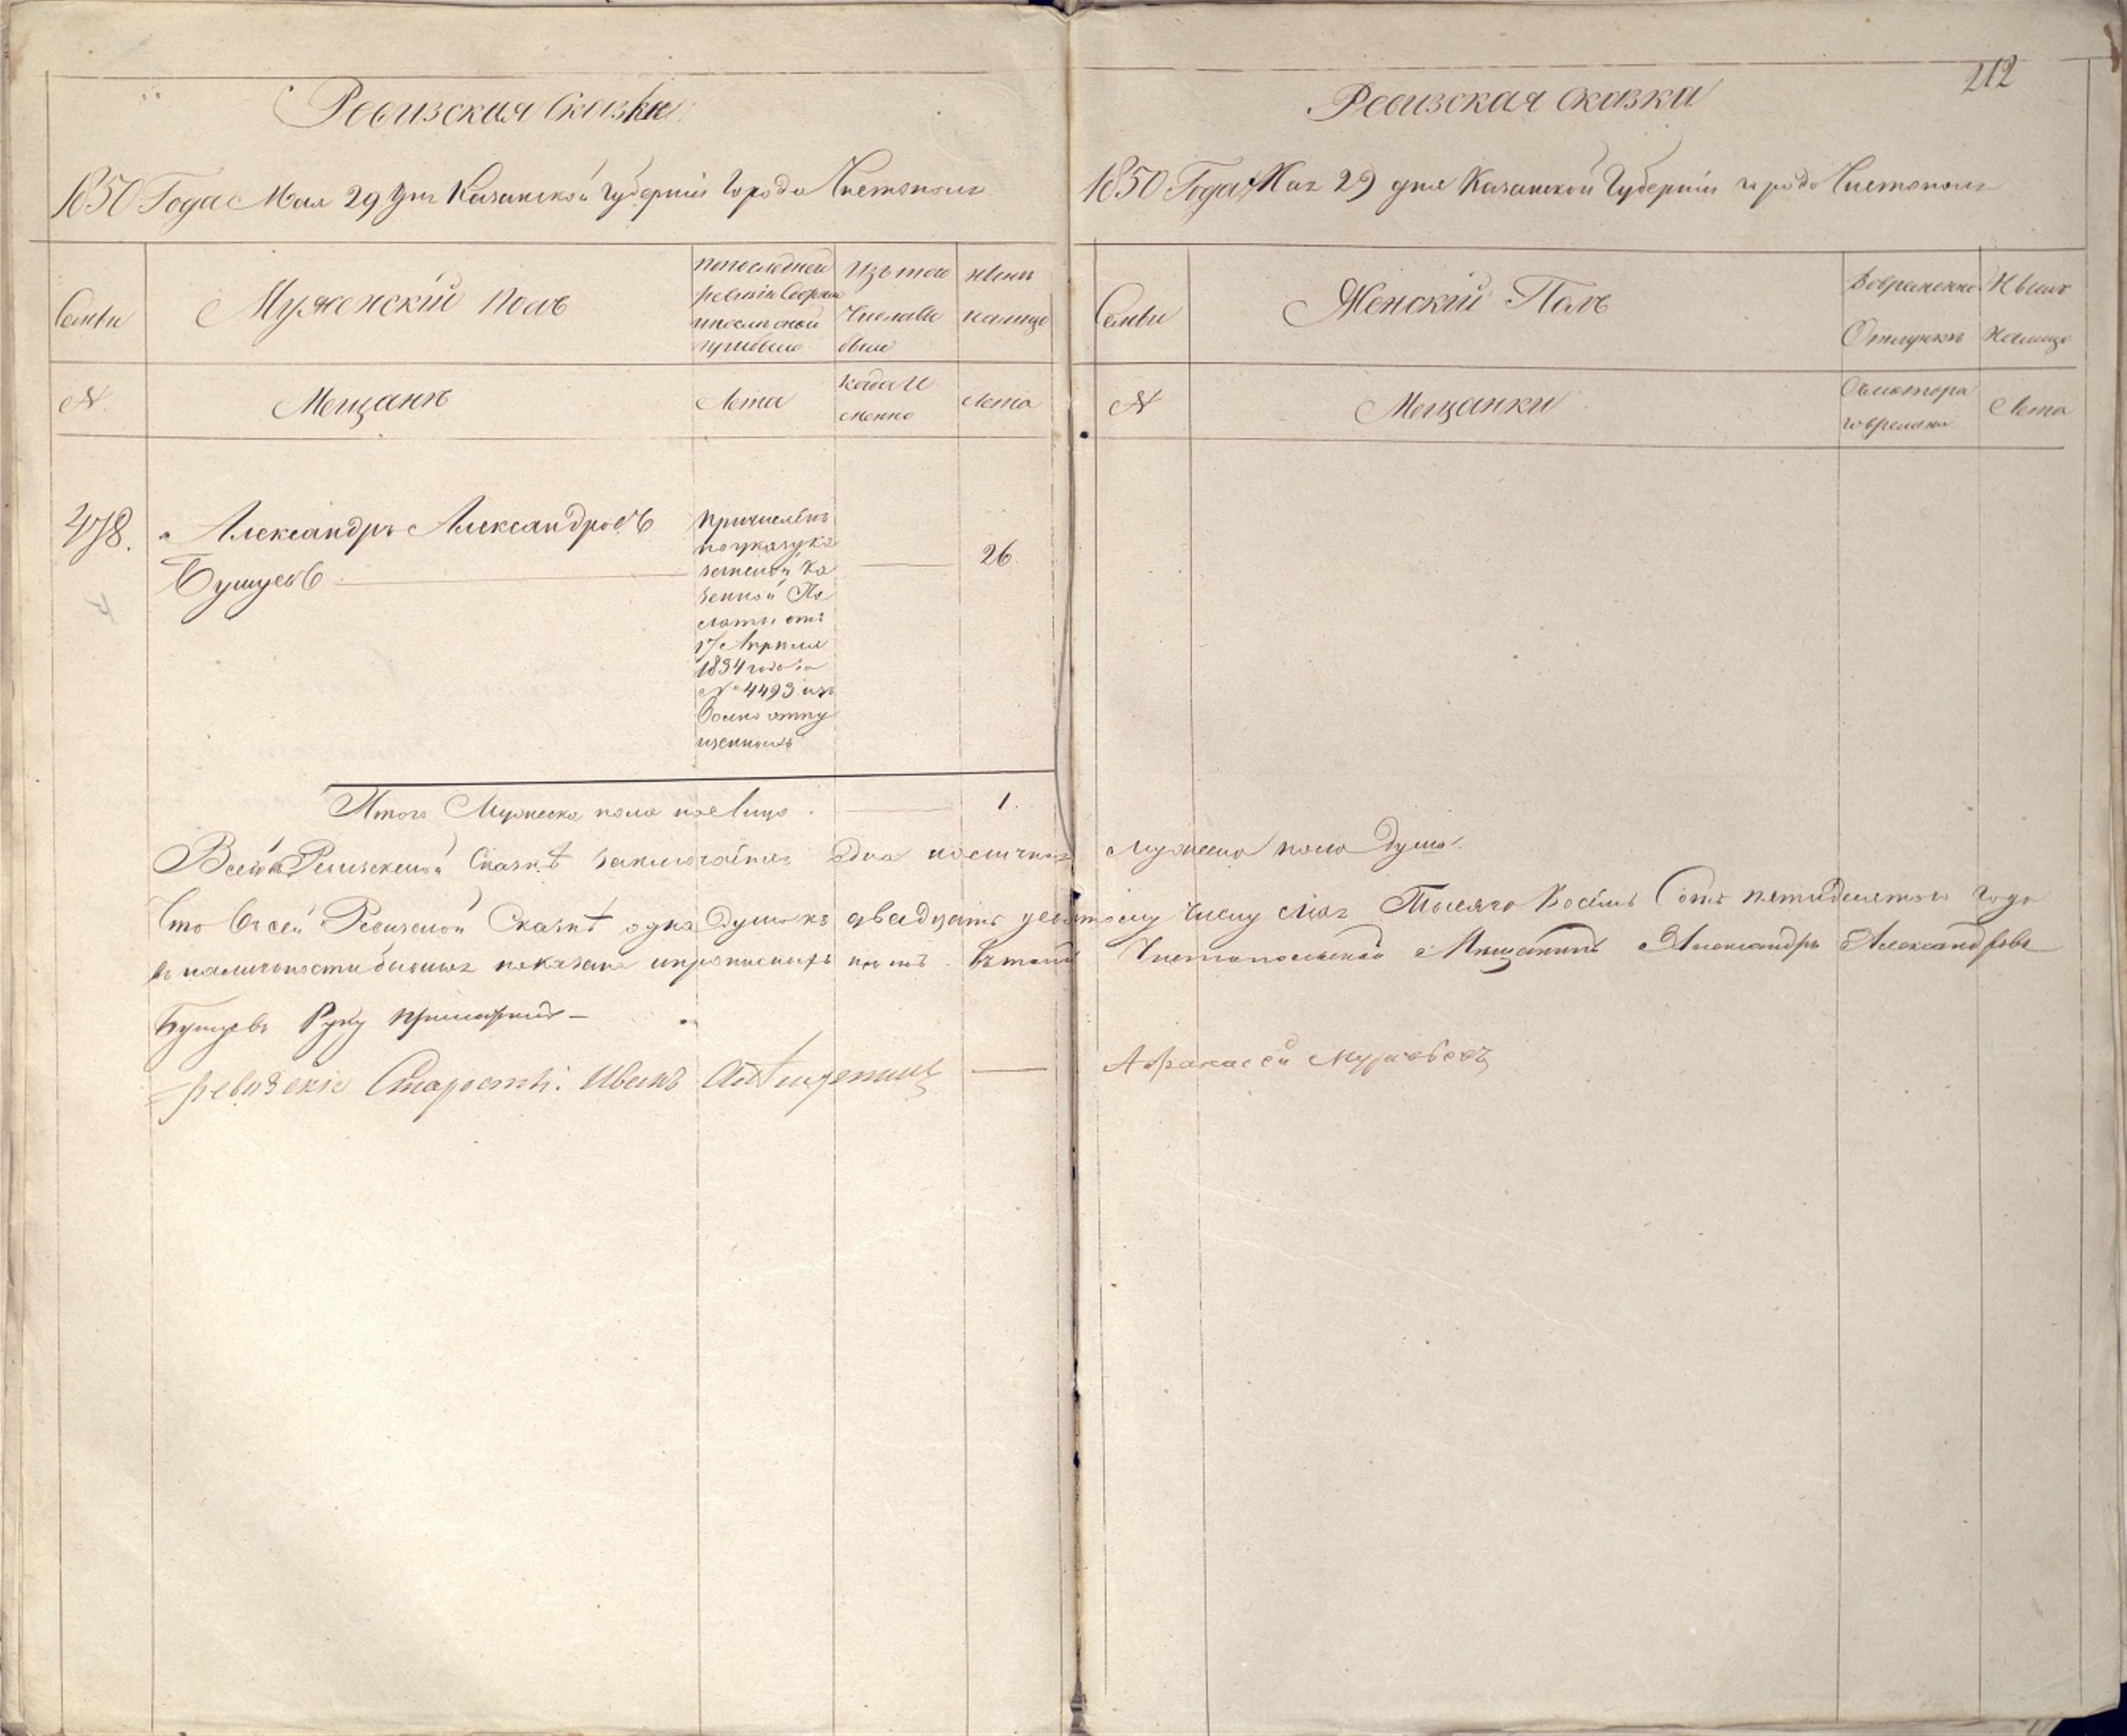 Ревизская Сказка
1850 Года Мая 29 дня Казанской Губернiи Города Чистополя
Семьи
Мужескiй полъ
По последней
ревизiи состояло
и после оной
прибыло
Изъ того
Числа вы
было
Ныне
налицо
№
Мещанъ
Лета
Когда И
менно
Лета
478.
Александръ Александровъ
Бушуевъ
26
Причисленъ
по указу Ка
занской Ка
зенной Па
латы отъ
17 Апреля
1834 года за
№ 4493 изъ
вольноотпу
щенныхъ
Итого Мужеска пола на Лицо
1.
212
Ревизская сказка
1850 Года Мая 29 дня Казанской Губернiи города Чистополя
Семьи
Женскiй Полъ
Во временной
Отлучке
Ныне
Налицо
№
Мещанки
Съ котора
го времяни
Лета
Всей Ревизской Сказкѣ заключается одна наличная мужеска пола душа.
Что в сей Ревизской Сказкѣ одна Душа къ двадцать девятому числу мая Тысяча Восемь Сотъ пятидесятого года
въ наличности бывшая показана и прописныхъ нѣтъ. Въ томъ Чистопольской Мещанинъ Александръ Александровъ
Бушуевъ Руку приложилъ
ревизскiе Старосты: Иванъ Афанасей